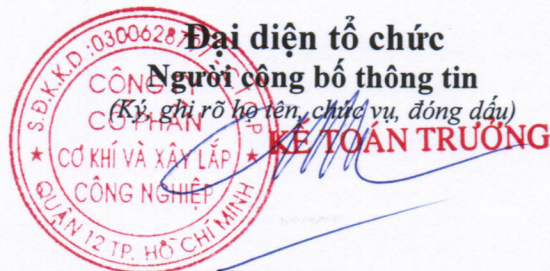 Đại diện tổ chức
Người công bố thông tin
(Ký, ghi rõ họ tên, chức vụ, đóng dấu)
KẾ TOÁN TRƯỞNG
CÔNG TY
CỔ PHẦN
CƠ KHÍ VÀ XÂY LẮP
CÔNG NGHIỆP
QUẬN 12 TP. HỒ CHÍ MINH